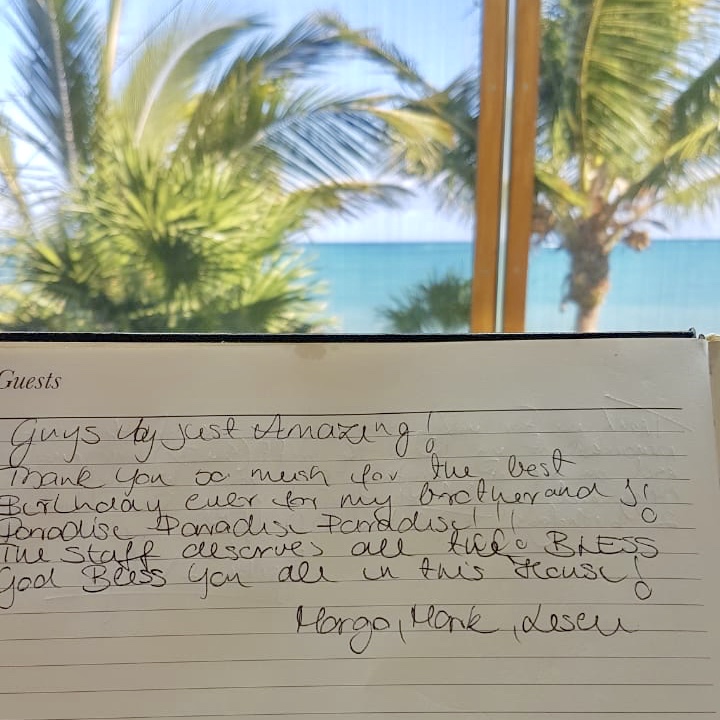 Guests
Guys just Amazing!
Thank you so mush for the best
Birthday ever for my brother and I!
Paradise Paradise Paradise!!!
The staff deserves all the BLESS
God Bless you all in this House!
Margo, Mark,